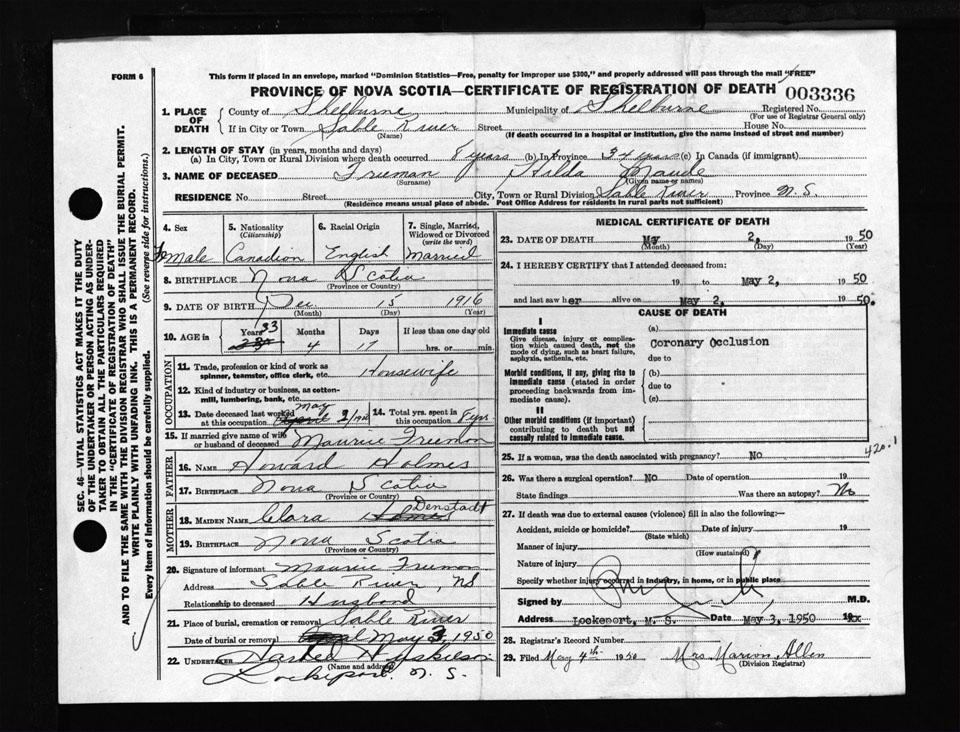 FORM 6
This form if placed in an envelope, marked "Dominion Statistics—Free, penalty for improper use $300," and properly addressed will pass through the mail "FREE"
PROVINCE OF NOVA SCOTIA—CERTIFICATE OF REGISTRATION OF DEATH 003336
SEC. 46—VITAL STATISTICS ACT MAKES IT THE DUTY
OF THE UNDERTAKER OR PERSON ACTING AS UNDER-
TAKER TO OBTAIN ALL THE PARTICULARS REQUIRED
IN THE "CERTIFICATE OF REGISTRATION OF DEATH"
AND TO FILE THE SAME WITH THE DIVISION REGISTRAR WHO SHALL ISSUE THE BURIAL PERMIT.
WRITE PLAINLY WITH UNFADING INK. THIS IS A PERMANENT RECORD.
Every item of information should be carefully supplied. (See reverse side for instructions.)
1. PLACE OF DEATH County of Shelburne Municipality of Shelburne Registered No.
(For use of Registrar General only)
If in City or Town Sable River Street House No.
(Name) (If death occurred in a hospital or institution, give the name instead of street and number)
2. LENGTH OF STAY (in years, months and days)
(a) In City, Town or Rural Division where death occurred 8 years (b) in Province 34 years (c) In Canada (if immigrant)
3. NAME OF DECEASED Freeman Hilda Maude
(Surname) (Given name or names)
RESIDENCE No. Street City, Town or Rural Division Sable River Province N.S.
(Residence means usual place of abode. Post Office Address for residents in rural parts not sufficient)
4. Sex 5. Nationality (Citizenship) 6. Racial Origin 7. Single, Married, Widowed or Divorced (write the word)
Female Canadian English Married
8. BIRTHPLACE Nova Scotia
(Province or Country)
9. DATE OF BIRTH Dec 15 1916
(Month) (Day) (Year)
10. AGE in Years Months Days If less than one day old
33 4 17 hrs. or min.
OCCUPATION
11. Trade, profession or kind of work as spinner, teamster, office clerk, etc. Housewife
12. Kind of industry or business, as cotton-mill, lumbering, bank, etc.
13. Date deceased last worked at this occupation May 2/1950 14. Total yrs. spent in this occupation 8 yrs
15. If married give name of wife or husband of deceased Maurice Freeman
FATHER
16. NAME Howard Holmes
17. BIRTHPLACE Nova Scotia
(Province or Country)
MOTHER
18. MAIDEN NAME Clara Holmes Denstadt
19. BIRTHPLACE Nova Scotia
(Province or Country)
20. Signature of informant Maurice Freeman
Address Sable River, NS
Relationship to deceased Husband
21. Place of burial, cremation or removal Sable River
Date of burial or removal April May 3, 1950
22. UNDERTAKER
(Name and address)
Lockeport. N. S.
MEDICAL CERTIFICATE OF DEATH
23. DATE OF DEATH May 2, 1950
(Month) (Day) (Year)
24. I HEREBY CERTIFY that I attended deceased from:
19 to May 2, 1950
and last saw her alive on May 2, 1950.
CAUSE OF DEATH
I
Immediate cause
Give disease, injury or complication which caused death, not the mode of dying, such as heart failure, asphyxia, asthenia, etc.
(a) Coronary Occlusion
due to
Morbid conditions, if any, giving rise to immediate cause (stated in order proceeding backwards from immediate cause).
(b)
due to
(c)
II
Other morbid conditions (if important) contributing to death but not causally related to immediate cause.
420.1
25. If a woman, was the death associated with pregnancy? No
26. Was there a surgical operation? No Date of operation 19
State findings Was there an autopsy? No
27. If death was due to external causes (violence) fill in also the following:—
Accident, suicide or homicide? Date of injury 19
(State which)
Manner of injury
(How sustained)
Nature of injury
Specify whether injury occurred in industry, in home, or in public place
Signed by M.D.
Address Lockeport, N. S. Date May 3, 1950 19xx
28. Registrar's Record Number
29. Filed May 4th 1950 Mrs Marion Allen
(Division Registrar)